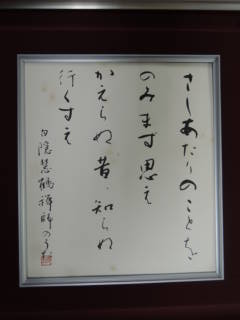 さしあたりのことを
のみます思え
かえらぬ昔、知らぬ
行くすえ
白隠慧鶴禅師のうた